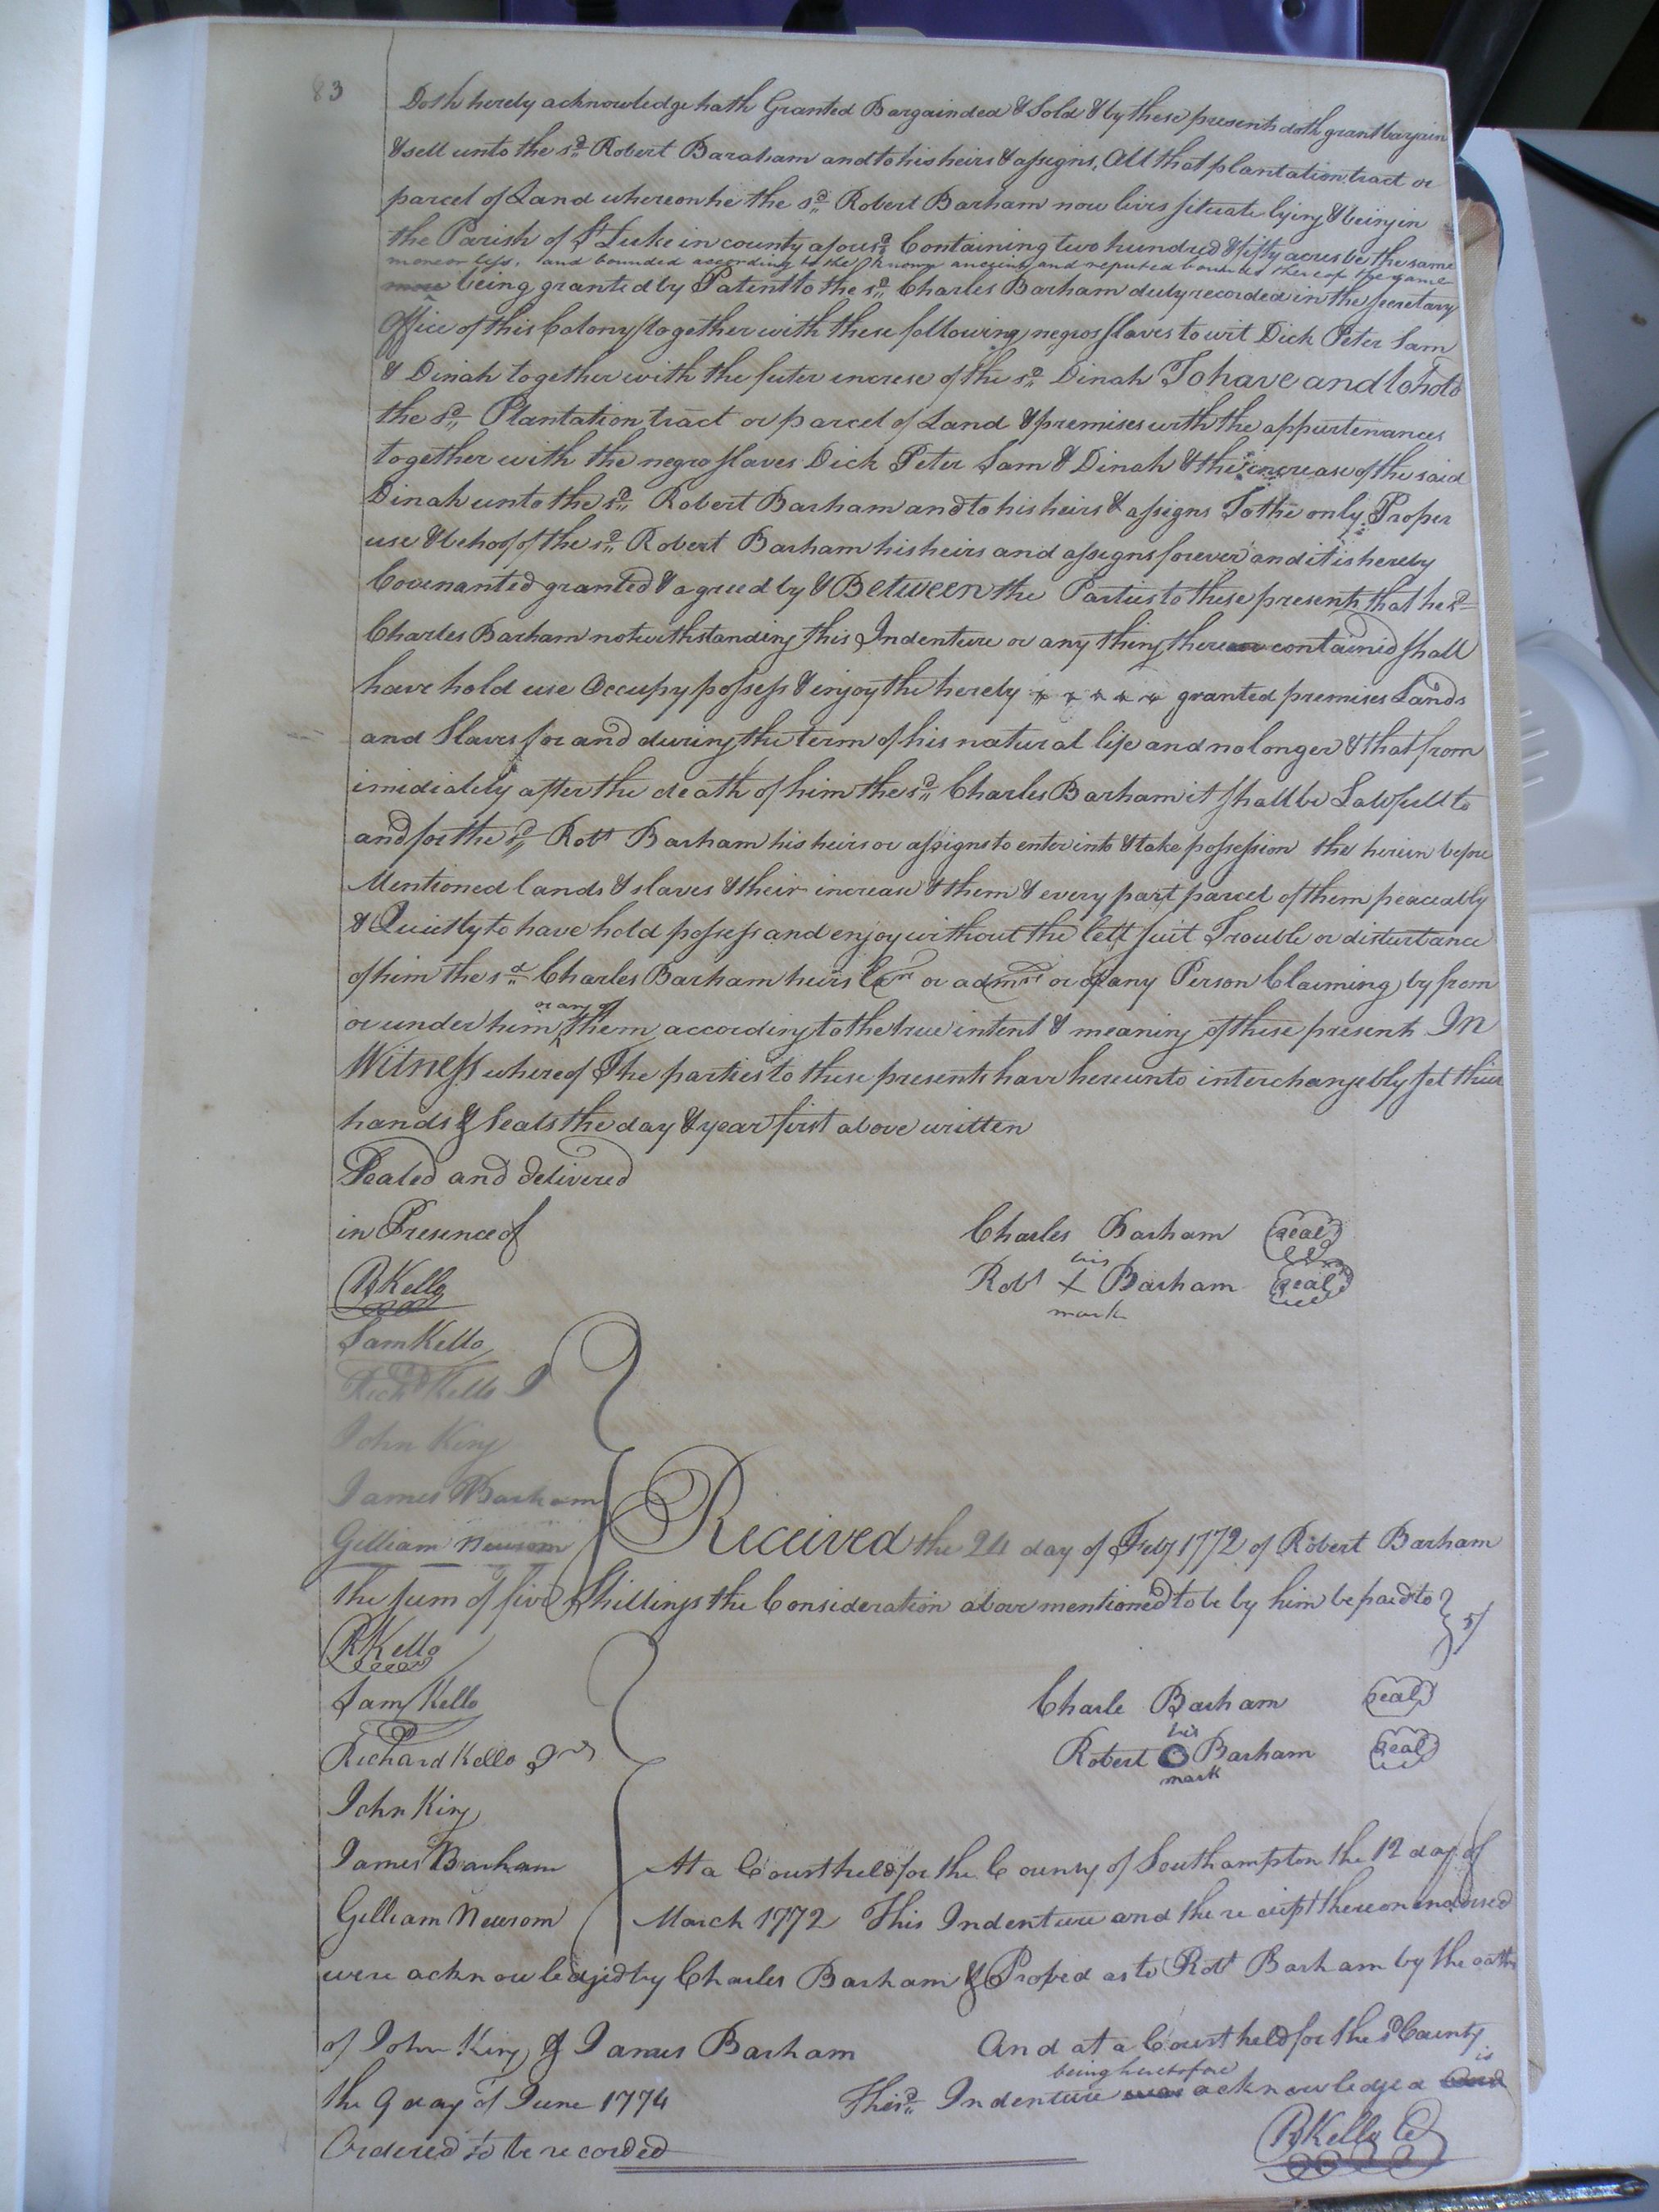 83
Doth hereby acknowledge hath Granted Bargainded & Sold & by these presents doth grant bargain
& sell unto the sd. Robert Baraham and to his heirs & assigns, All that plantation tract or
parcel of Land whereon he the sd. Robert Barham now lives situate lying & being in
the Parish of St. Luke in county aforesd. Containing two hundred & fifty acres be the same
more or less, and bounded according to the known ancient and reputed bounds thereof the same
being granted by Patent to the sd. Charles Barham duly recorded in the secretary
Office of this Colony together with these following negros slaves to wit Dick Peter Sam
& Dinah together with the futer increse of the sd. Dinah To have and to hold
the sd. Plantation tract or parcel of Land & premises with the appurtenances
together with the negro slaves Dick Peter Sam & Dinah & the increase of the said
Dinah unto the sd. Robert Barham and to his heirs & assigns To the only Proper
use & behoof of the sd. Robert Barham his heirs and assigns forever and it is hereby
Covenanted granted & agreed by & Between the Parties to these presents that he sd.
Charles Barham notwithstanding this Indenture or any thing there contained shall
have hold use Occupy possess & enjoy the hereby granted premises Lands
and Slaves for and during the term of his natural life and no longer & that from
imidiately after the death of him the sd. Charles Barham it shall be Lawfull to
and for the sd. Robt Barham his heirs or assigns to enter into & take possession the herein before
Mentioned lands & slaves & their increase & them & every part parcel of them peaceably
& Quietly to have hold possess and enjoy without the lett suit Trouble or disturbance
of him the sd. Charles Barham heirs Exrs or admrs or of any Person Claiming by from
or any of
or under him them according to the true intent & meaning of these present In
Witness whereof The parties to these presents have hereunto interchangebly set their
hands & Seals the day & year first above written
Sealed and delivered
in Presence of
Charles Barham seal
his
RKello
Robt X Barham seal
mark
Sam Kello
Richd Kello J
John King
James Barham
Gilliam Newsom
Received the 24 day of Feby 1772 of Robert Barham
the sum of five Shillings the Consideration above mentioned to be by him be paid to 5/
RKello
Sam Kello
Charle Barham seal
his
Richard Kello Jnr
Robert O Barham seal
mark
John King
James Barham
At a Court held for the County of Southampton the 12 day of
Gilliam Newsom
March 1772 This Indenture and the reciept thereon endorsed
were acknowledgid by Charles Barham & Proved as to Robt Barham by the oaths
of John King & James Barham And at a Court held for the sd County
being heretofore is
the 9 day of June 1774 This sd. Indenture was acknowledged and
Ordered to be recorded
RKello Cl